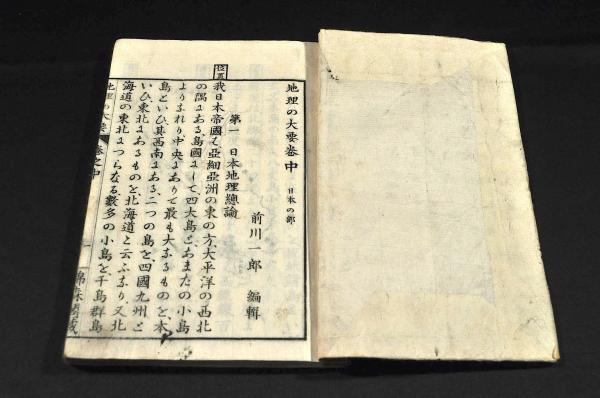 地理の大要卷中 日本の部
前川一郎 編輯
第一 日本地理總論
位置
我日本帝國は亞細亞洲の東の方、大平洋の西北
の隅にある、島國にして、四大島と、あまたの小島
よりなれり、中央にありて最も大なるものを、本
島といひ、其西南にある、二つの島を、四國九州と
いひ、東北にあるものを、北海道と云ふなり、又北
海道の東北につらなる、數多の小島を、千島群島
地理の大要 卷之中